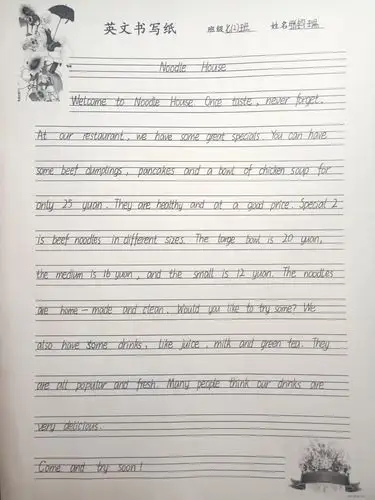 英文书写纸 班级 七(2)班 姓名
Noodle House
Welcome to Noodle House. Once taste, never forget.
At our restaurant, we have some great specials. You can have
some beef dumplings, pancakes and a bowl of chicken soup for
only 25 yuan. They are healthy and at a good price. Special 2
is beef noodles in different sizes. The large bowl is 20 yuan,
the medium is 16 yuan, and the small is 12 yuan. The noodles
are home-made and clean. Would you like to try some? We
also have some drinks, like juice, milk and green tea. They
are all popular and fresh. Many people think our drinks are
very delicious.
Come and try soon!